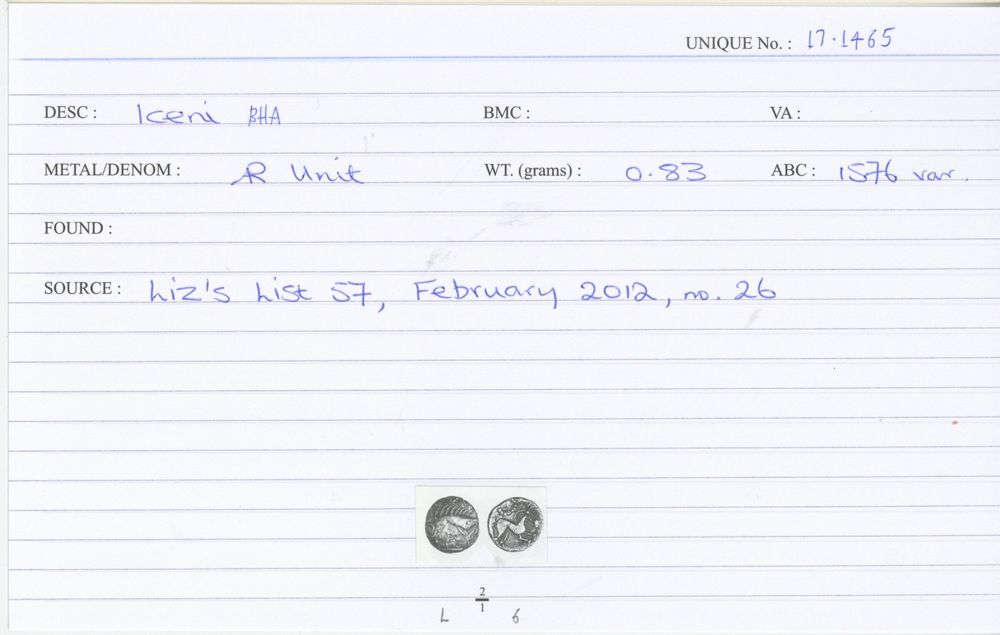 UNIQUE No. : 17.1465
DESC : Iceni BHA BMC : VA :
METAL/DENOM : AR Unit WT. (grams) : 0.83 ABC : 1576 var.
FOUND :
SOURCE : Liz's List 57, February 2012, no. 26
2
1
L 6